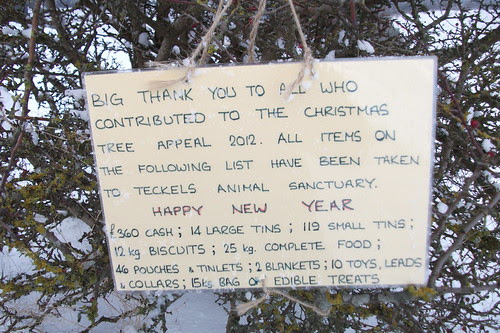 BIG THANK YOU TO ALL WHO
CONTRIBUTED TO THE CHRISTMAS
TREE APPEAL 2012. ALL ITEMS ON
THE FOLLOWING LIST HAVE BEEN TAKEN
TO TECKELS ANIMAL SANCTUARY.
HAPPY NEW YEAR
£360 CASH; 14 LARGE TINS; 119 SMALL TINS;
12 kg BISCUITS; 25 kg. COMPLETE FOOD;
46 POUCHES & TINLETS; 2 BLANKETS; 10 TOYS, LEADS
& COLLARS; 15kg BAG OF EDIBLE TREATS